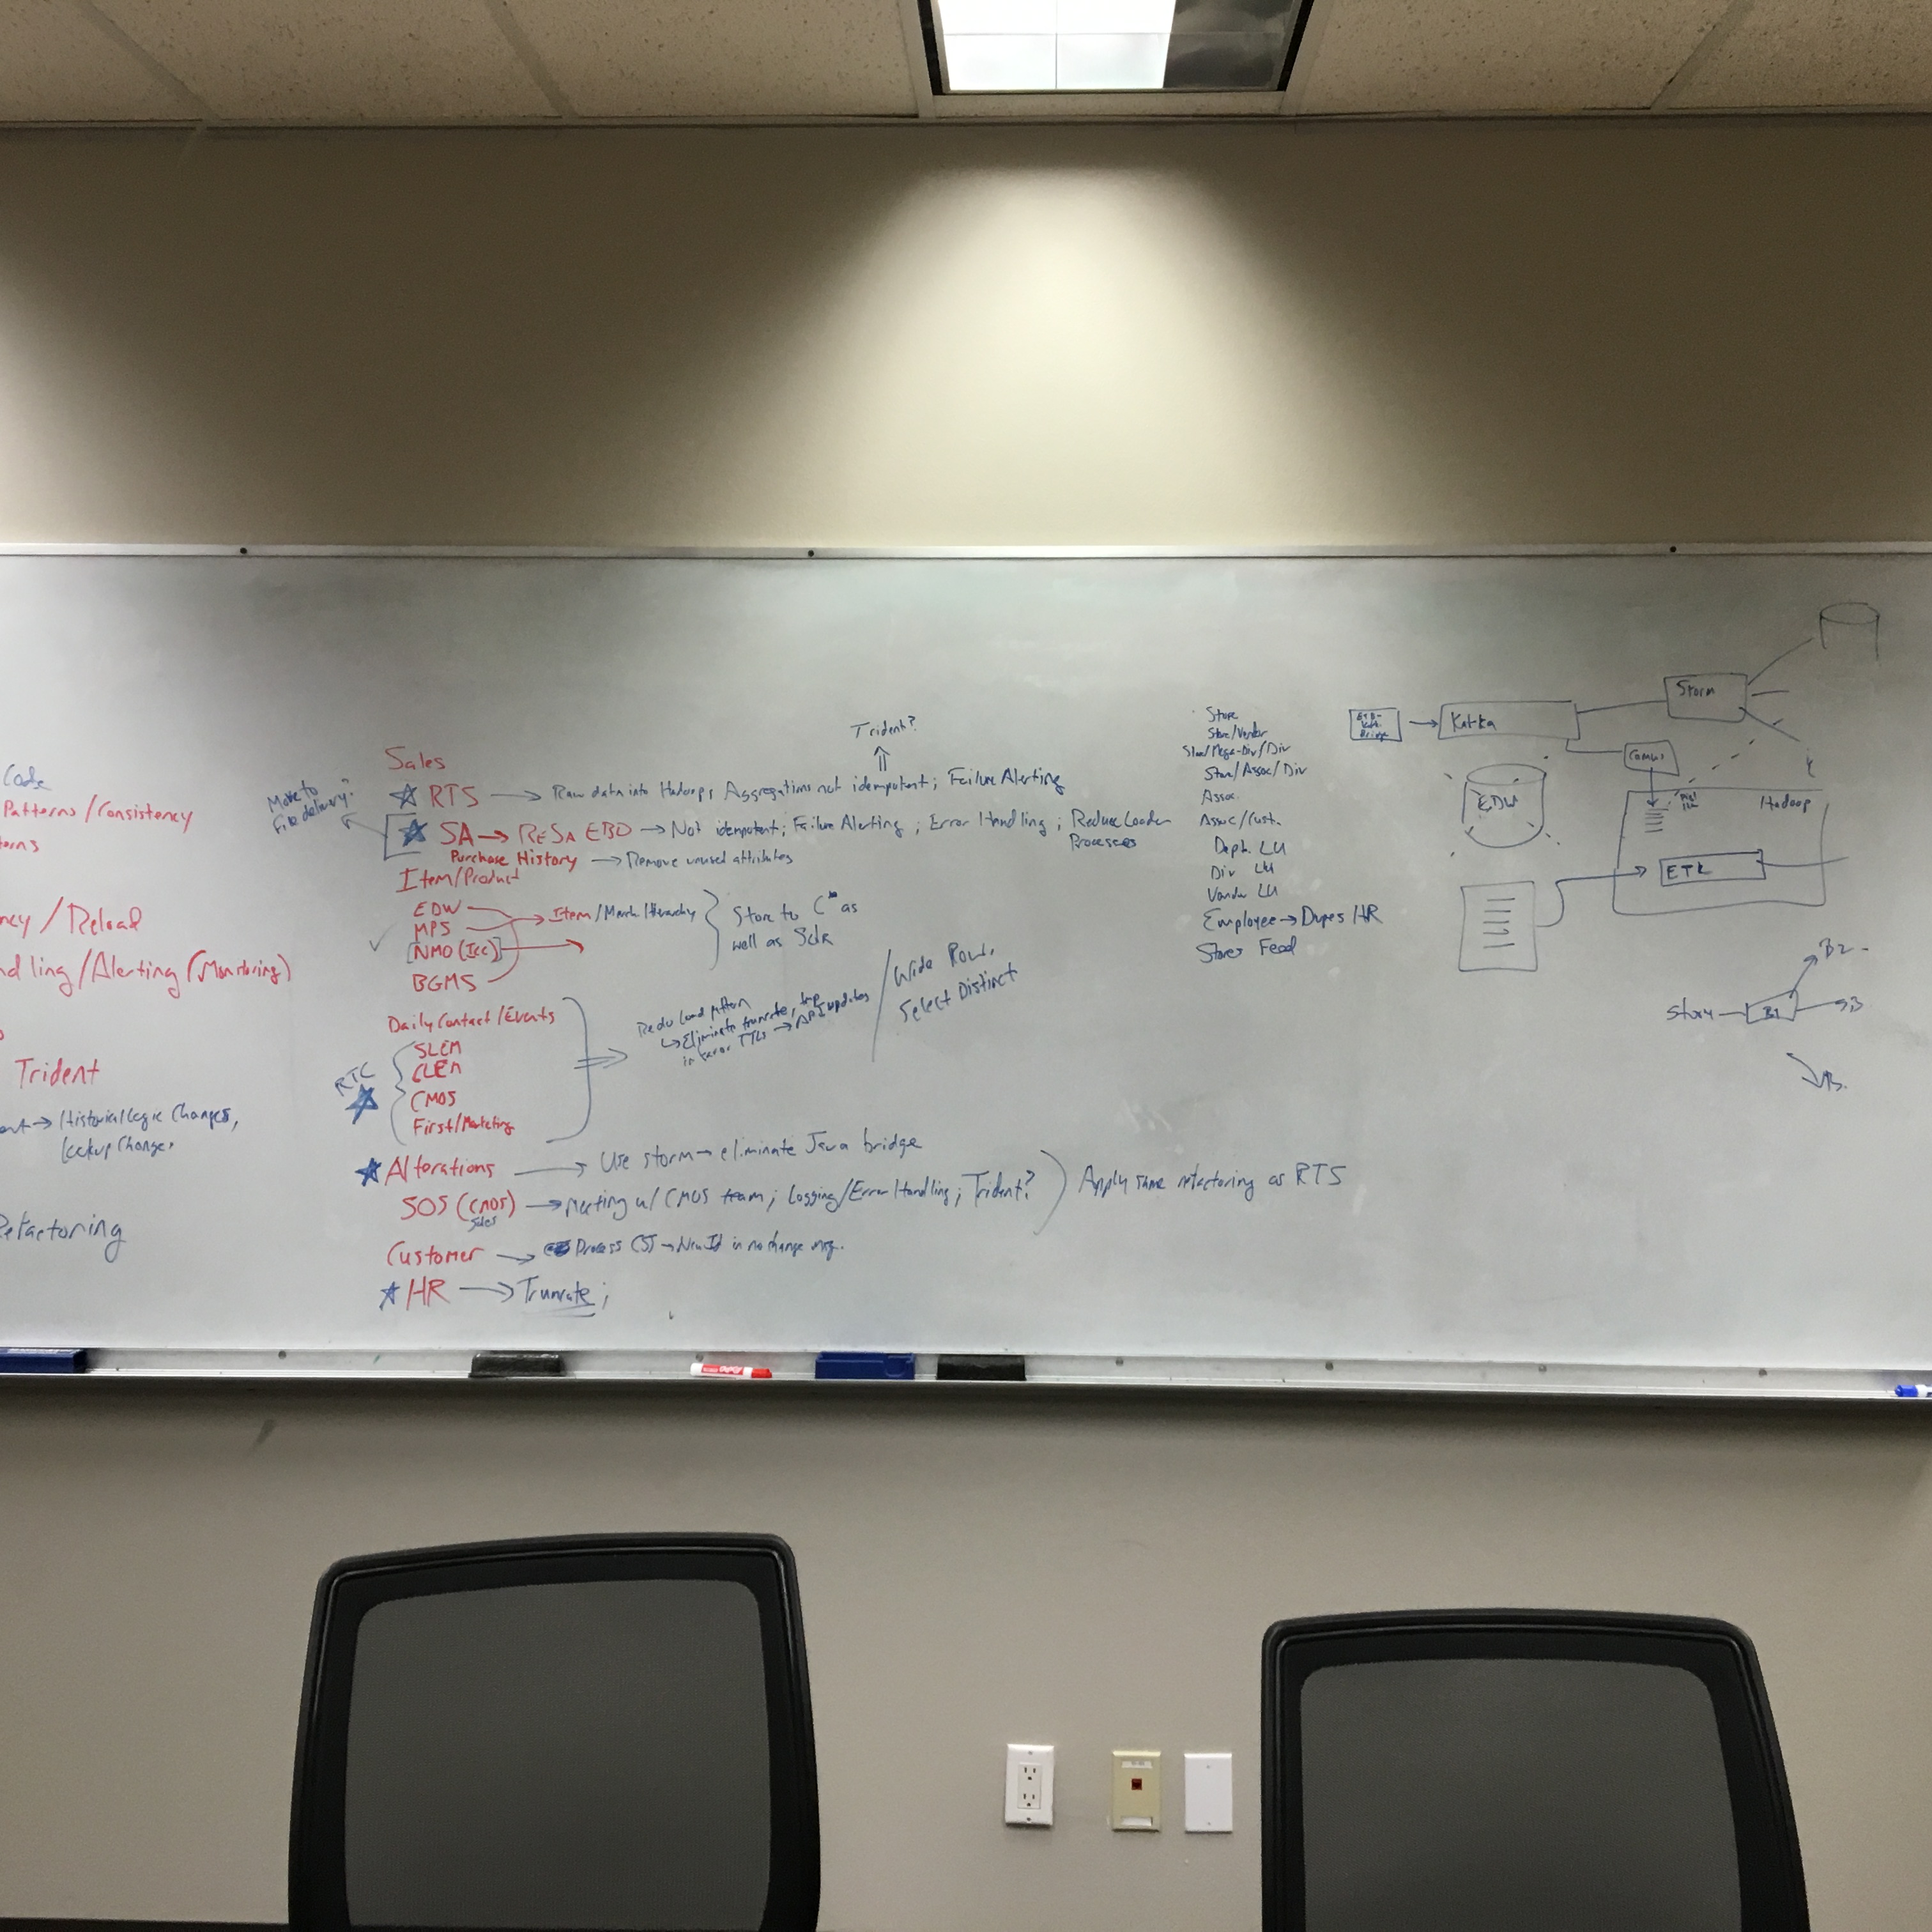 Code
Patterns/Consistency
/Reload
/Alerting (Monitoring)
Trident
→ Historical Logic Changes,
Lookup Changes
Refactoring
Move to
File delivery?
Trident?
Sales
RTS → Raw data into Hadoop; Aggregations not idempotent; Failure Alerting
SA → ReSA EBO → Not idempotent; Failure Alerting; Error Handling; Reduce Loader
Processes
Purchase History → Remove unused attributes
Item/Product
EDW
MPS
[NMO (Icc)]
BGMS
Item/Merch Hierarchy
Store to C* as
well as Solr
Daily Contact/Events
RTC
SLCM
CLEM
CMOS
First/Marketing
Redo Load pattern
Eliminate truncate,
in favor TTLs → API updates
Wide Row,
Select Distinct
Alterations → Use storm → eliminate Java bridge
SOS (CMOS) → Meeting w/ CMOS team; Logging/Error Handling; Trident?
Sales
Apply same refactoring as RTS
Customer → Process CSI → New Id in no change msg.
HR → Truncate;
Store
Store/Vendor
Store/Mega-Div/Div
Store/Assoc/Div
Assoc
Assoc/Cust.
Dept. LU
Div LU
Vendor LU
Employee → Dupes/HR
Stores Feed
Bridge
Kafka
Storm
Camus
EDW
Hadoop
ETL
Story
B1
B2
B3